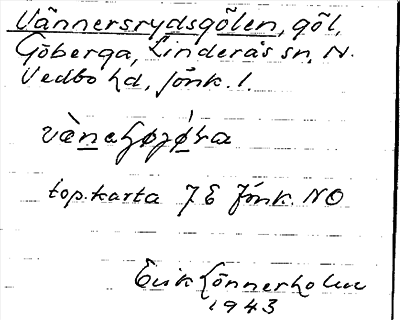 Vännersrydsgölen, göl,
Göberga, Linderås sn, N.
Vedbo hd, Jönk. l.
top. karta 7E Jönk. NO
Erik Lönnerholm
1943